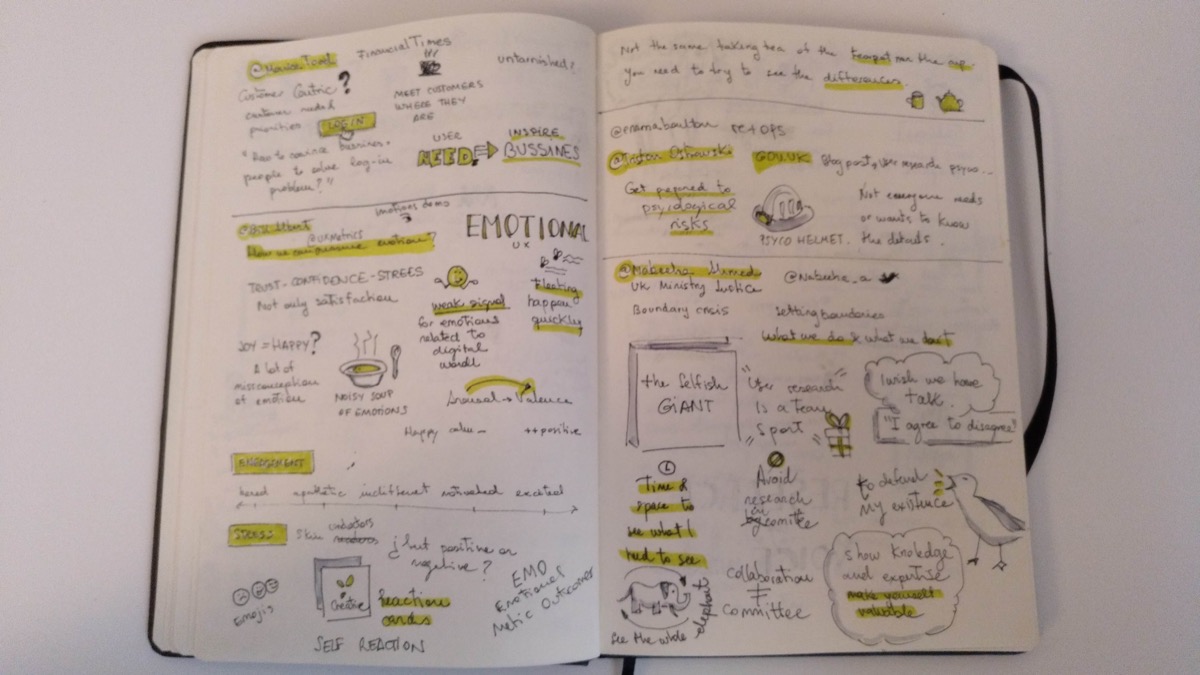 Financial Times
untarnished?
Customer Centric?
customer needs
priorities
LOGIN
MEET CUSTOMERS
WHERE THEY
ARE
people to solve log-in
problem?"
USER
NEED
INSPIRE
BUSSINES
emotions demo
@UXMetrics
How we can measure emotion?
EMOTIONAL
UX
TRUST - CONFIDENCE - STRESS
Not only satisfaction
weak signal
for emotions
related to
digital
world
fleeting
happen
quickly
JOY = HAPPY?
A lot of
missconception
of emotion
NOISY SOUP
OF EMOTIONS
Arousal → Valence
Happy calm -
++positive
ENGAGEMENT
bored apathetic indifferent motivated excited
STRESS
Skin
¿but positive or
negative?
Emojis
Creative
Reaction
cards
SELF REACTION
EMO
Emotional
Metric Outcomes
Not the same taking tea of the teapot or the cup.
You need to try to see the differences.
@emmaboulton
Get prepared to
psycological
risks
GOV.UK
Blog post, user research psyco...
PSYCO HELMET.
Not everyone needs
or wants to know
the details.
@Nabeeha Ahmed
UK Ministry Justice
@Nabeeha_a
Boundary crisis
Setting boundaries
What we do & what we don't
the selfish
GIANT
"User research
Is a team
Sport"
I wish we have
talk.
"I agree to disagree"
Time &
space to
see what I
need to see
Avoid
research
by comittee
to defend
my existence
See the whole
elephant
collaboration
≠
committee
show knoledge
and expertise
make yourself
valuable